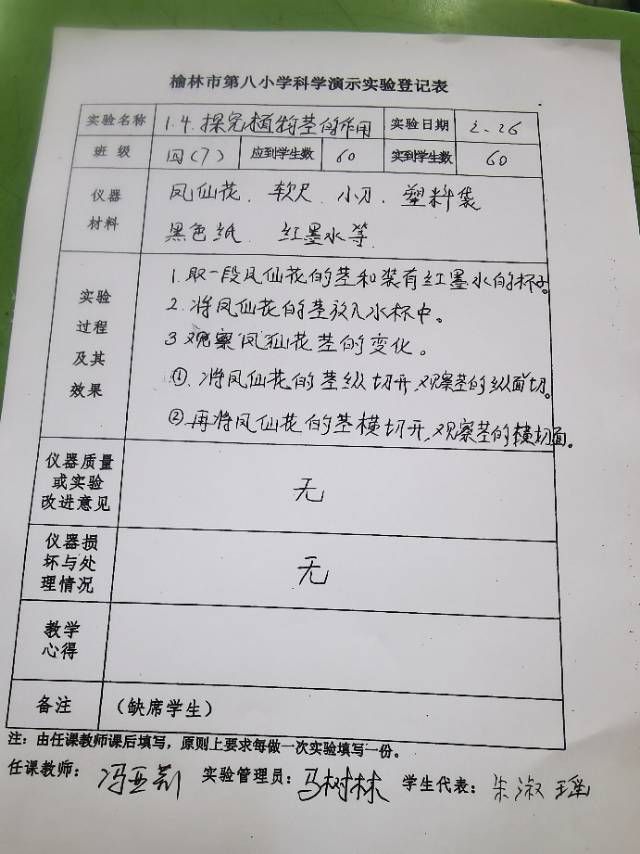 榆林市第八小学科学演示实验登记表
实验名称 1.4.探究植物茎的作用 实验日期 2.26
班 级 四(7) 应到学生数 60 实到学生数 60
仪器 凤仙花、软尺、小刀、塑料袋
材料 黑色纸、红墨水等
实验过程及其效果
1.取一段凤仙花的茎和装有红墨水的杯子。
2.将凤仙花的茎放入水杯中。
3.观察凤仙花茎的变化。
①.将凤仙花的茎纵切开,观察茎的纵面切。
②再将凤仙花的茎横切开,观察茎的横切面。
仪器质量
或实验 无
改进意见
仪器损
坏与处 无
理情况
教学
心得
备注 (缺席学生)
注:由任课教师课后填写,原则上要求每做一次实验填写一份。
任课教师: 冯亚莉 实验管理员: 马树林 学生代表: 朱淑瑶